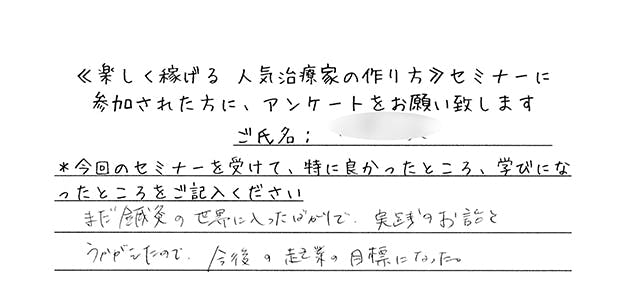 ≪楽しく稼げる 人気治療家の作り方≫セミナーに
参加された方に、アンケートをお願い致します
ご氏名；
*今回のセミナーを受けて、特に良かったところ、学びにな
ったところをご記入ください
まだ鍼灸の世界に入ったばかりで、実践のお話を
うかがえたので、今後の起業の目標になった。